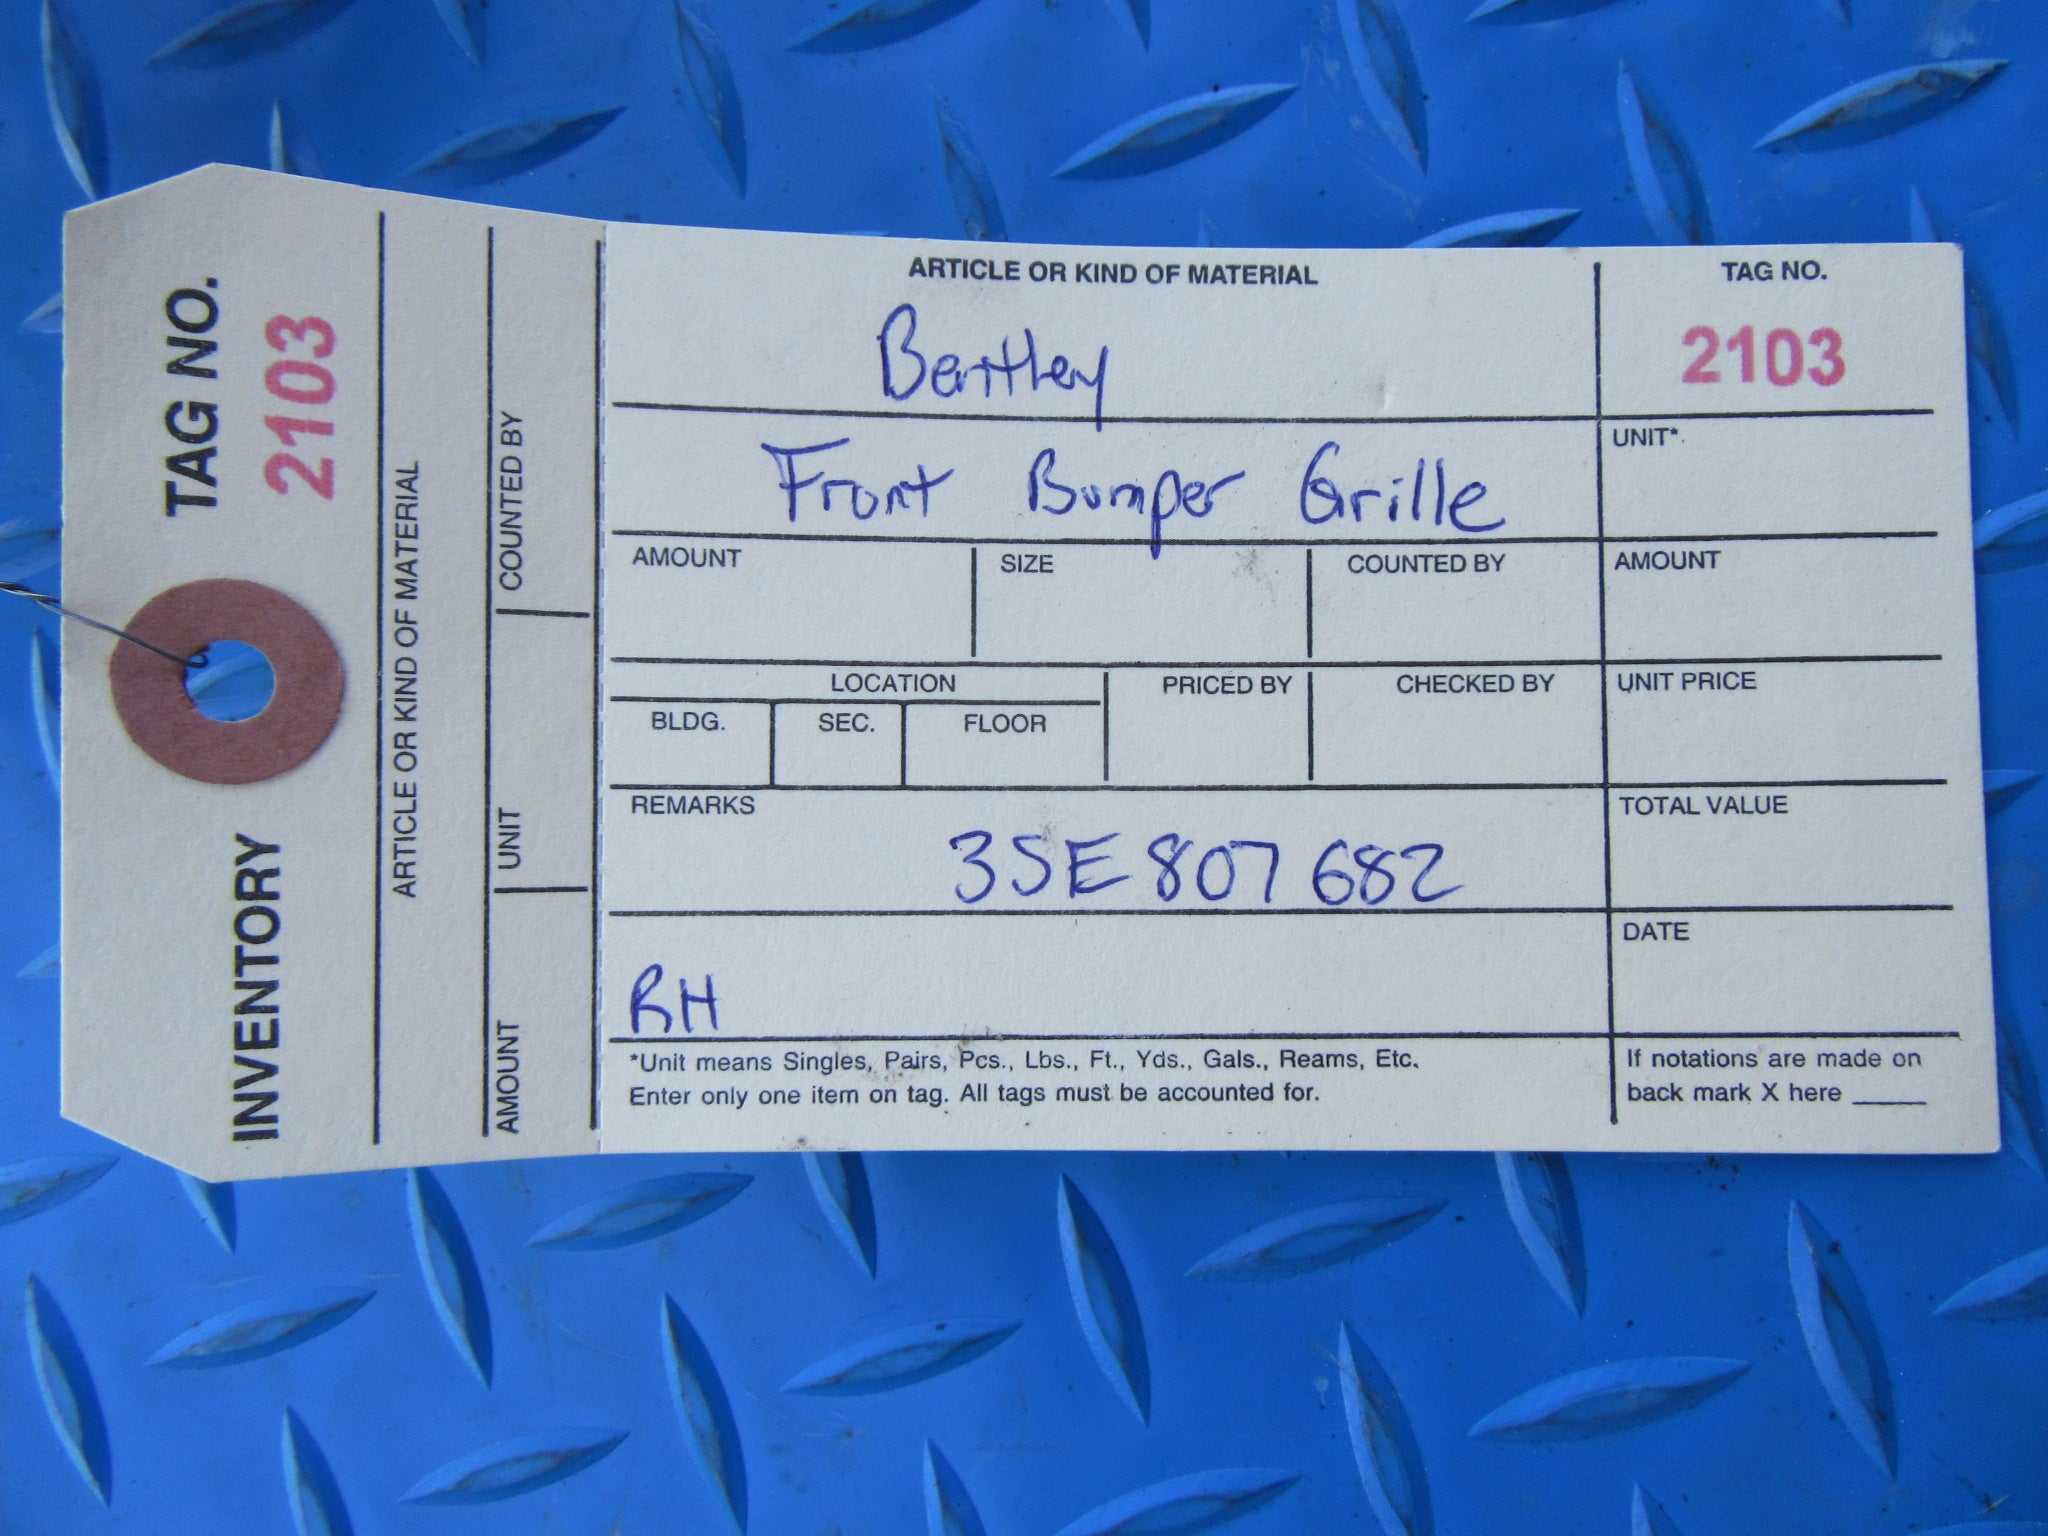 INVENTORY TAG NO.
2103
ARTICLE OR KIND OF MATERIAL
AMOUNT UNIT COUNTED BY
ARTICLE OR KIND OF MATERIAL
Bentley
TAG NO.
2103
Front Bumper Grille
UNIT*.
AMOUNT SIZE COUNTED BY AMOUNT
LOCATION PRICED BY CHECKED BY UNIT PRICE
BLDG. SEC. FLOOR
REMARKS
3SE 807 682
TOTAL VALUE
RH
DATE
*Unit means Singles, Pairs, Pcs., Lbs., Ft., Yds., Gals., Reams, Etc.
Enter only one item on tag. All tags must be accounted for.
If notations are made on
back mark X here ____